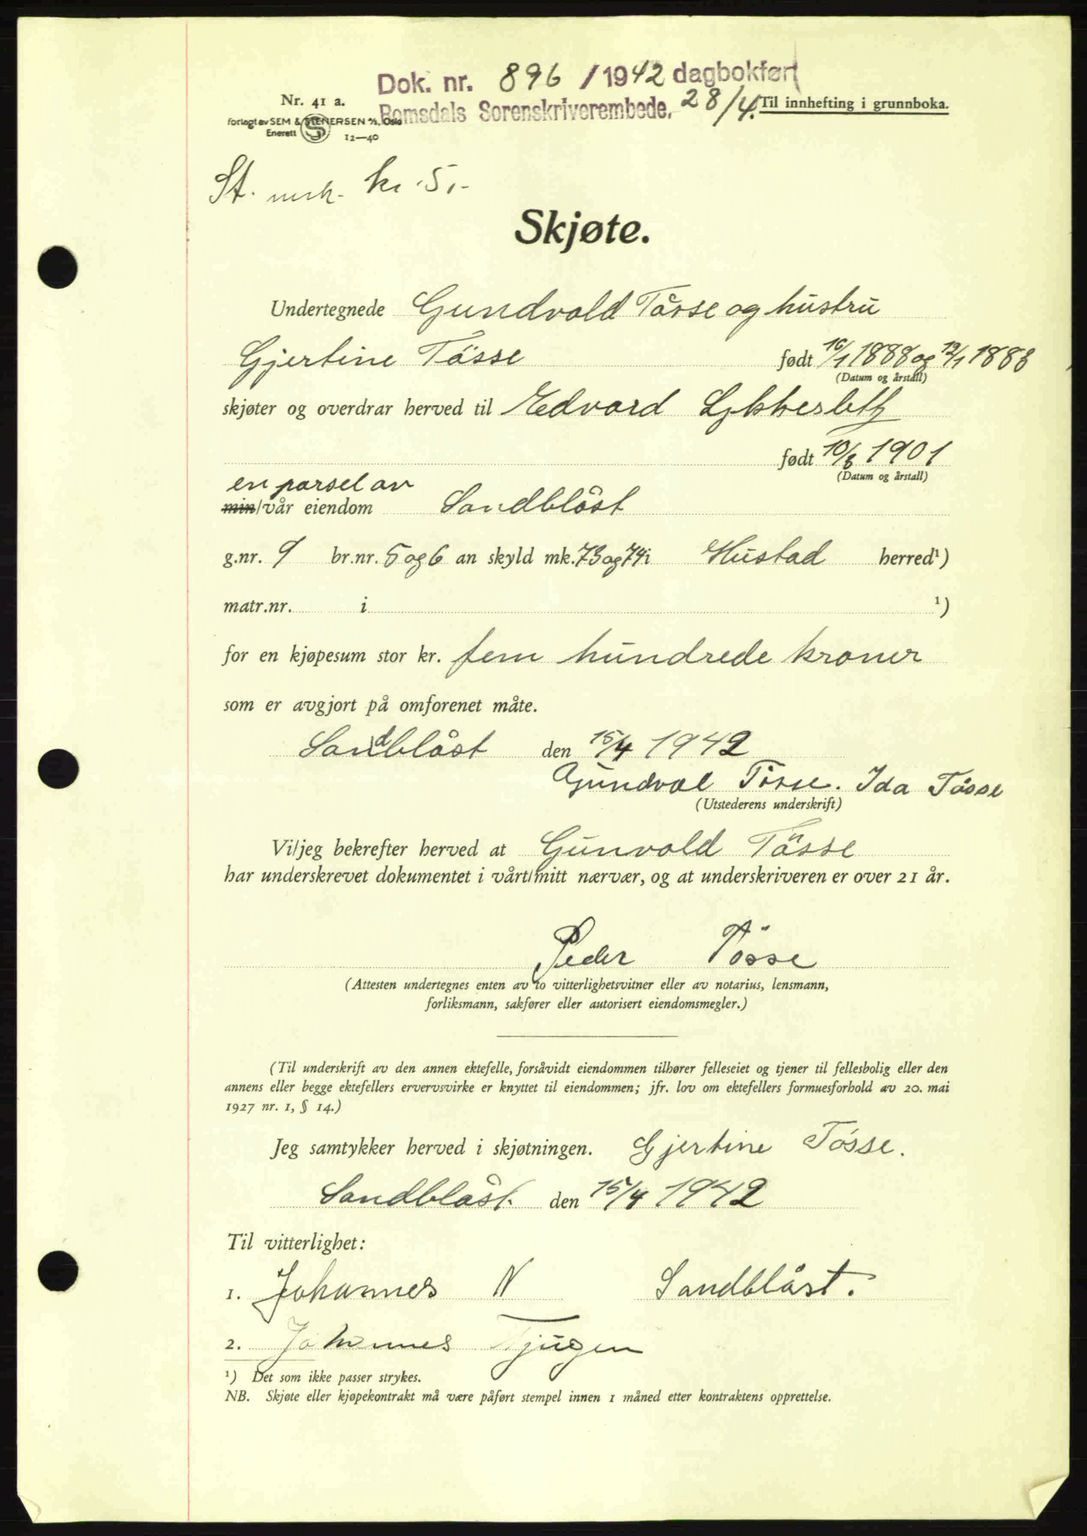 Dok. nr. 896 / 1942 dagbokført
Romsdals Sorenskriverembede. 28/4.
Nr. 41 a.
Til innhefting i grunnboka.
forlagt av SEM & STENERSEN A/S, Oslo
Enerett S 12—40
St. mrk. kr. 5,-
Skjøte.
Undertegnede Gundvold Tåsse og hustru
Gjertine Tåsse født 16/1 1888 og 12/1 1888
(Datum og årstall)
skjøter og overdrar herved til Edvard
født 10/8 1901
(Datum og årstall)
en parsel av
min/vår eiendom Sandblåst
g.nr. 9 br.nr. 5 og 6 an skyld mk. 73 og 74 i Hustad herred¹)
matr.nr. i ¹)
for en kjøpesum stor kr. fem hundrede kroner
som er avgjort på omforenet måte.
Sandblåst den 15/4 1942
Gundval Tåsse. Ida Tåsse
(Utstederens underskrift)
Vi/jeg bekrefter herved at Gunvold Tåsse
har underskrevet dokumentet i vårt/mitt nærvær, og at underskriveren er over 21 år.
Peder Tösse
(Attesten undertegnes enten av to vitterlighetsvitner eller av notarius, lensmann,
forliksmann, sakfører eller autorisert eiendomsmegler.)
(Til underskrift av den annen ektefelle, forsåvidt eiendommen tilhører felleseiet og tjener til fellesbolig eller den
annens eller begge ektefellers ervervsvirke er knyttet til eiendommen; jfr. lov om ektefellers formuesforhold av 20. mai
1927 nr. 1, § 14.)
Jeg samtykker herved i skjøtningen. Gjertine Tösse.
Sandblåst. den 15/4 1942
Til vitterlighet:
1. Johannes N Sandblåst.
2. Johannes Tjugen
¹) Det som ikke passer strykes.
NB. Skjøte eller kjøpekontrakt må være påført stempel innen 1 måned etter kontraktens opprettelse.